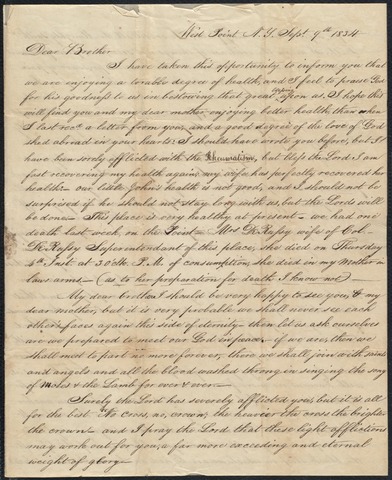 West Point N.Y. Sept 9th 1834
Dear Brother
I have taken this opportunity to inform you that
we are enjoying a torable degree of health, and I feel to praise God
for his goodness to us in bestowing that great blessing upon us. I hope this
will find you and my dear mother enjoying better health, than when
I last recd a letter from you, and a good degree of the love of God
shed abroad in your hearts: I should have wrote you before, but I
have been sorely afflicted with the Rheumatism, but bless the Lord I am
fast recovering my health again, my wife has perfectly recovered her
health - our little John's health is not good, and I should not be
surprised if he should not stay long with us, but the Lords will
be done - This place is very healthy at present - we had one
death last week, on the Point - Mrs DeRussy wife of Col-
DeRussy Superentendant of this place, she died on Thursday
4th Inst. at 30 P.M. of consumption, she died in my Mother-
laws arms, (as to her preparation for death I know not) -
My dear brother I should be very happy to see you, & my
dear mother, but it is very probable we shall never see each
others faces again this side of eternity - then let us ask ourselves
are we prepared to meet our God in peace, - if we are, then we
shall meet to part no more forever, there we shall join with saints
and angels and all the blood washed throng in singing the song
of Moses & the Lamb for ever & ever -
Surely the Lord has severely afflicted you, but it is all
for the best "No cross, no, crown, the heavier the cross the brighter
the crown - and I pray the Lord that these light afflictions
may work out for you, a far more exceeding and eternal
weight of glory -